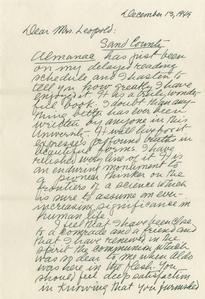 December 13, 1949
Dear Mrs. Leopold:
Sand County
Almanac has just been
on my delayed reading
schedule and I hasten to
tell you how greatly I have
enjoyed it. It is a wonder-
ful book. I doubt if any-
thing better has ever been
written by anyone in this
University. It
expresses profound truth in
beautiful forms. I have
relished every line of it. It is
an enduring monument to
a pioneer thinker on the
frontiers of a science which
is sure to assume an ever-
increasing significance in
human life.
I feel that I have been close
to a comrade and a friend and
that I have renewed in the
spirit the communion which
was so dear to me when Aldo
was here in the flesh. You
should get deep satisfaction
in knowing that you furnished